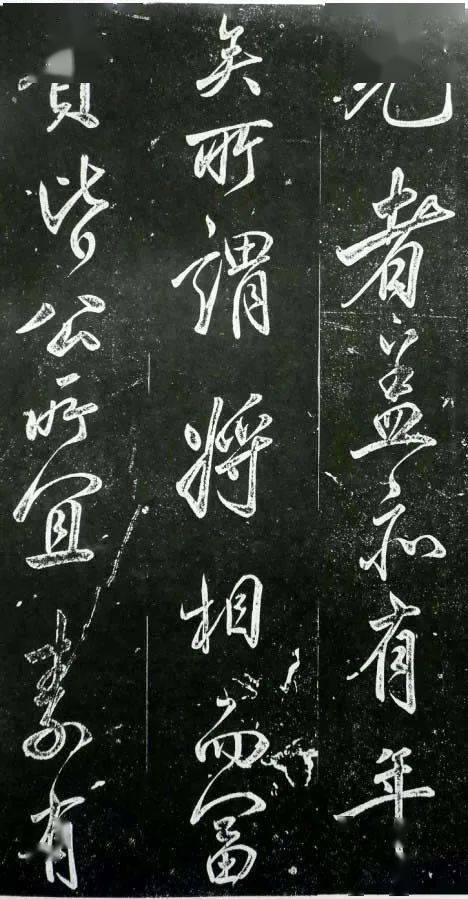 光者盖亦有年
矣所谓将相而富
贵皆公所宜素有